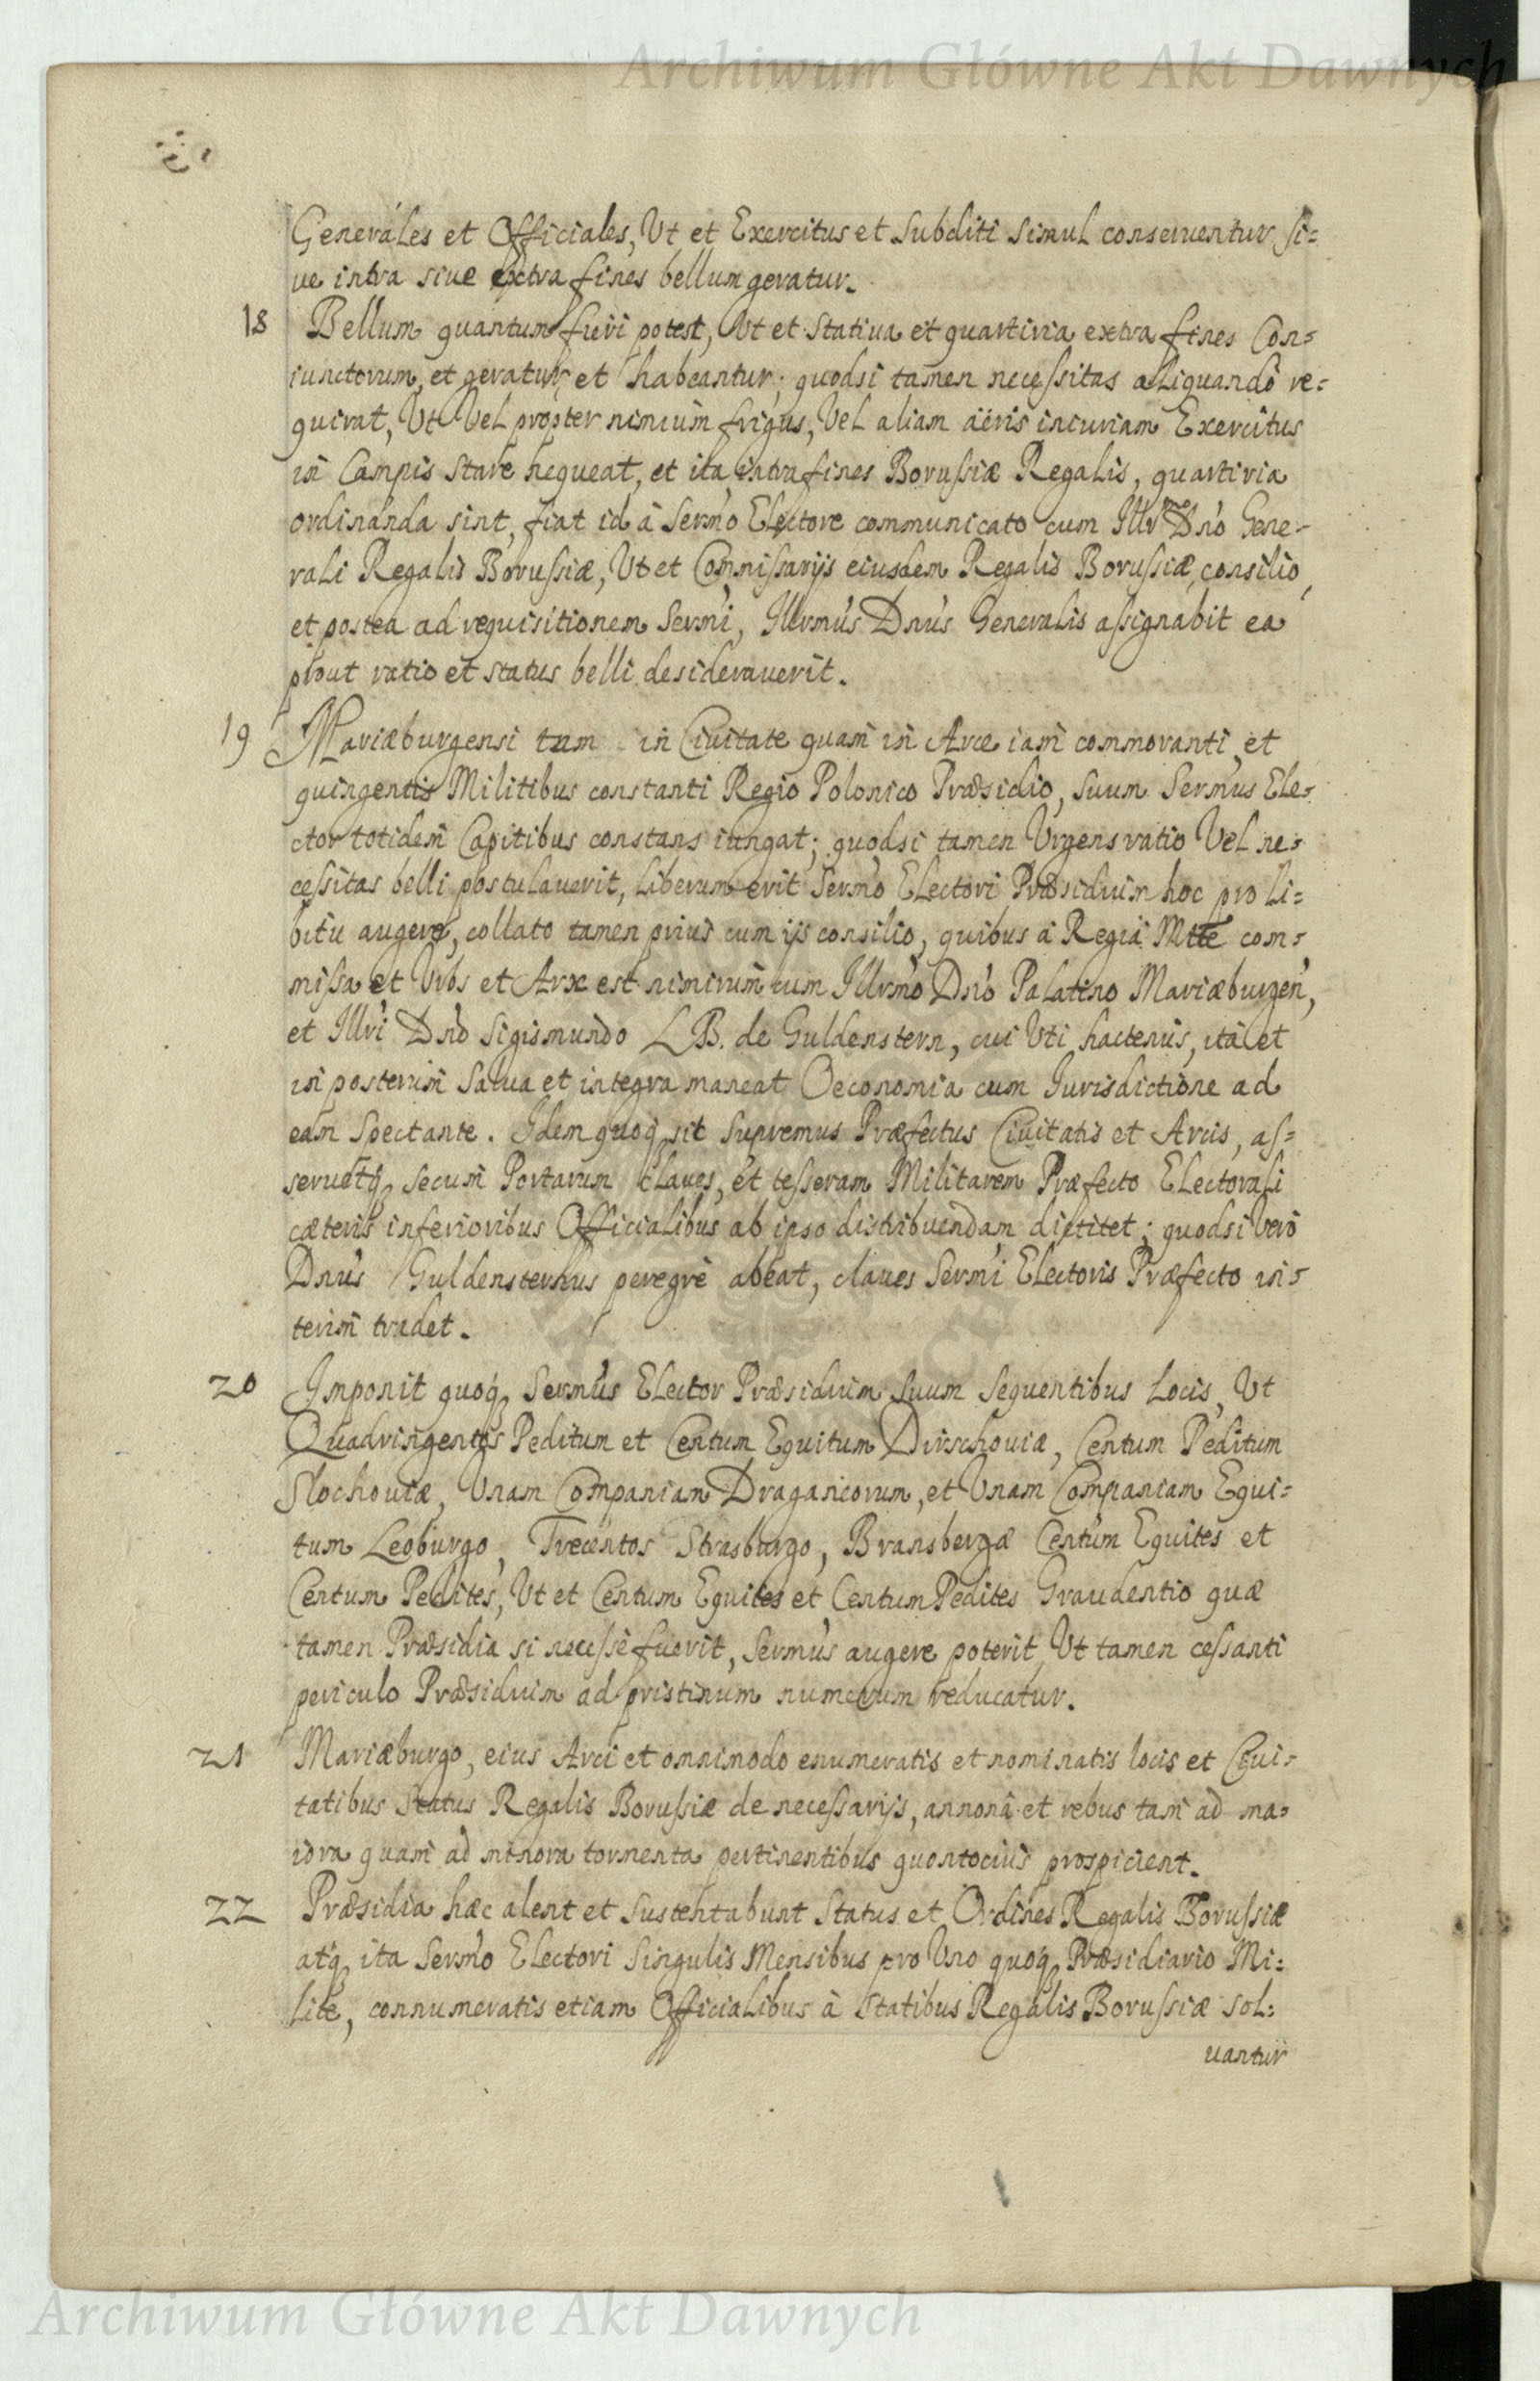 Archiwum Główne Akt Dawnych
Generáles et Officiales, Vt et Exercitus et Subditi Simul conseruentur si=
ue intra siue extra fines bellum geratur.
18 Bellum quantum fieri potest, Vt et Statiua et quartiria extra fines Con=
iunctorum, et geratur et habeantur; quodsi tamen necessitas aliquando re=
quirat, Vt Vel propter nimium frigus, Vel aliam aëris iniuriam Exercitus
in Campis Stare nequeat, et ita intra fines Borussiæ Regalis, quartiria
ordinanda sint, fiat id à Sermo Electore communicato cum Illr Dno Gene=
rali Regalis Borussiæ, Vt et Commissarijs eiusdem Regalis Borussiæ, consilio,
et postea ad requisitionem Sermi, Illrmus Dnus Generalis assignabit ea
prout ratio et status belli desiderauerit.
19 Mariæburgensi tum in Ciuitate quam in Arce iam commoranti, et
quingentis Militibus constanti Regio Polonico Præsidio, Suum Sermus Ele=
ctor totidem Capitibus constans iungat; quodsi tamen Vrgens ratio Vel ne=
cessitas belli postulauerit, liberum erit Sermo Electori Præsidium hoc pro li=
bitu augere, collato tamen prius cum ijs consilio, quibus a Regia Mtte com=
missa et Vrbs et Arx est nimirum cum Illrmo Dno Palatino Mariæburgen,
et Illri Dno Sigismundo L.B. de Guldenstern, cui Vti hactenus, ita et
in posterum Salua et integra maneat Oeconomia cum Iurisdictione ad
eam Spectante. Idem quoq sit Supremus Præfectus Ciuitatis et Arcis, as=
seruetq secum Portarum claues, et tesseram Militarem Præfecto Electorali
cæteris inferioribus Officialibus ab ipso distribuendam dictitet; quodsi Vero
Dnus Guldensternus peregrè abeat, claues Sermi Electoris Præfecto in=
terim tradet.
20 Imponit quoq Sermus Elector Præsidium Suum Sequentibus Locis, Vt
Quadringentos Peditum et Centum Equitum Dirschouiæ, Centum Peditum
Slochouiæ, Vnam Companiam Draganicorum, et Vnam Companiam Equi=
tum Leoburgo, Trecentos Strasburgo, Bransbergæ Centum Equites et
Centum Pedites, Vt et Centum Equites et Centum Pedites Graudentio quæ
tamen Præsidia si necesse fuerit, Sermus augere poterit, Vt tamen cessanti
periculo Præsidium ad pristinum numerum reducatur.
21 Mariæburgo, eius Arci et omnimodo enumeratis et nominatis locis et Ciui=
tatibus Status Regalis Borussiæ de necessarijs, annonâ et rebus tam ad ma=
iora quam ad minora tormenta pertinentibus quontocius prospicient.
22 Præsidia hæc alent et Sustentabunt Status et Ordines Regalis Borussiæ
atq ita Sermo Electori Singulis Mensibus pro Vno quoq Præsidiario Mi=
lite, connumeratis etiam Officialibus à Statibus Regalis Borussiæ sol=
uantur
Archiwum Główne Akt Dawnych